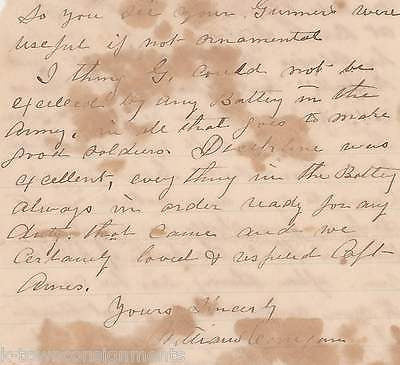 So you see your Gunners were
useful if not ornamental
I thing G, could not be
excelled by any Battery in the
Army, in all that goes to make
good soldiers. Decipline was
excellent, everything in the Battery
always in order ready for any
duty that came and we
certainly loved & respected Capt
Ames.
Yours Sincerly
William
k-townconsignments